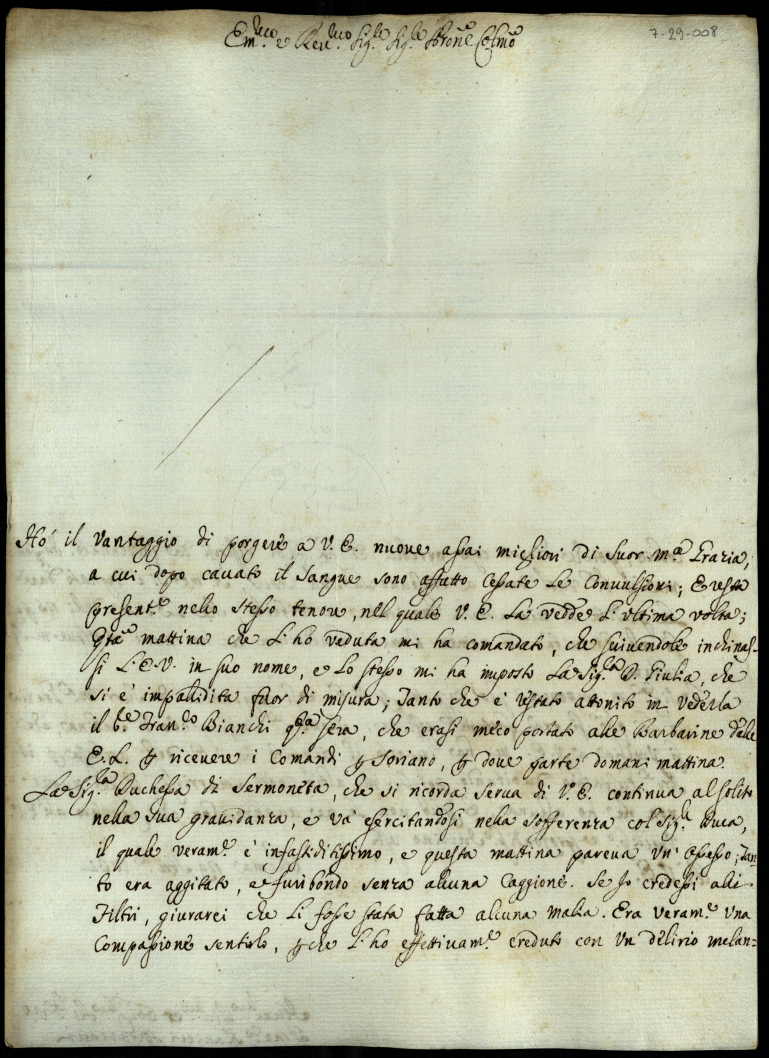 Em.mo e Rev.mo Sig.re Sig.re Prone Colmo
7-29-008
Hó il vantaggio di porgere a V. E. nuove assai migliori di Suor M.a Grazia,
a cui dopo cavato il Sangue sono affatto cessate le Convulsioni; E resta
present.e nello stesso tenore, nel quale V. E. la vedde l'ultima volta;
Q.ta mattina che l'ho veduta mi ha comandato, che scrivendole inchinas-
si l'E.V. in suo nome, e lo stesso mi ha imposto la Sig.ra D. Giulia, che
si è impallidita fuor di misura; Tanto che è restato attonito in vederla
il b.e Fran.co Bianchi q.ta sera, che erasi meco portato alle Barbarine dalle
E. L. p ricevere i Comandi p Soriano, p dove parte domani mattina.
La Sig.ra Duchessa di Sermoneta, che si ricorda serva di V. E. continua al solito
nella sua gravidanza, e và esercitandosi nella sofferenza col Sig.r Duca,
il quale veram.e è infastiditissimo, e questa mattina pareva un' ossesso; Tan-
to era aggitato, e furibondo senza alcuna caggione. Se Io credessi alli
Filtri, giurarei che li fosse stata fatta alcuna malia. Era veram.e una
Compassione sentirlo, p che l'ho effettivam.e creduto con un delirio melan=